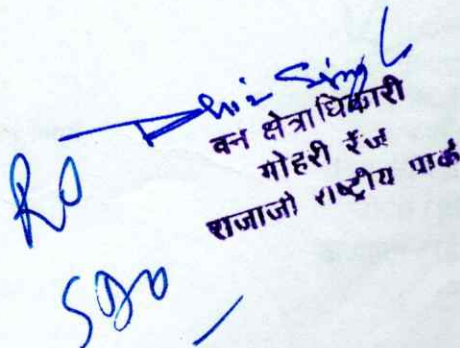 Singh
वन क्षेत्राधिकारी
गोहरी रेंज
राजाजी राष्ट्रीय पार्क
RO
SDO